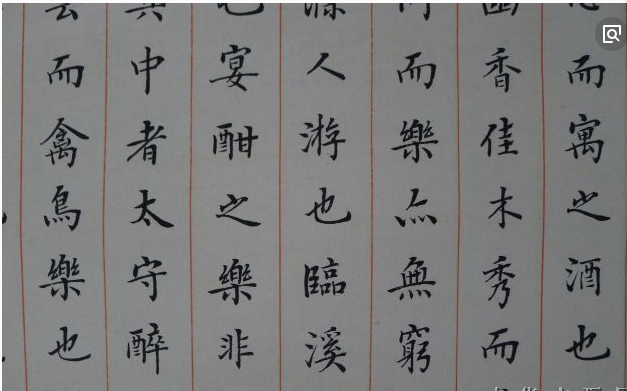 心而寓之酒也
幽香佳木秀而
同而樂亦無窮
滁人游也臨溪
也宴酣之樂非
其中者太守醉
去而禽鳥樂也